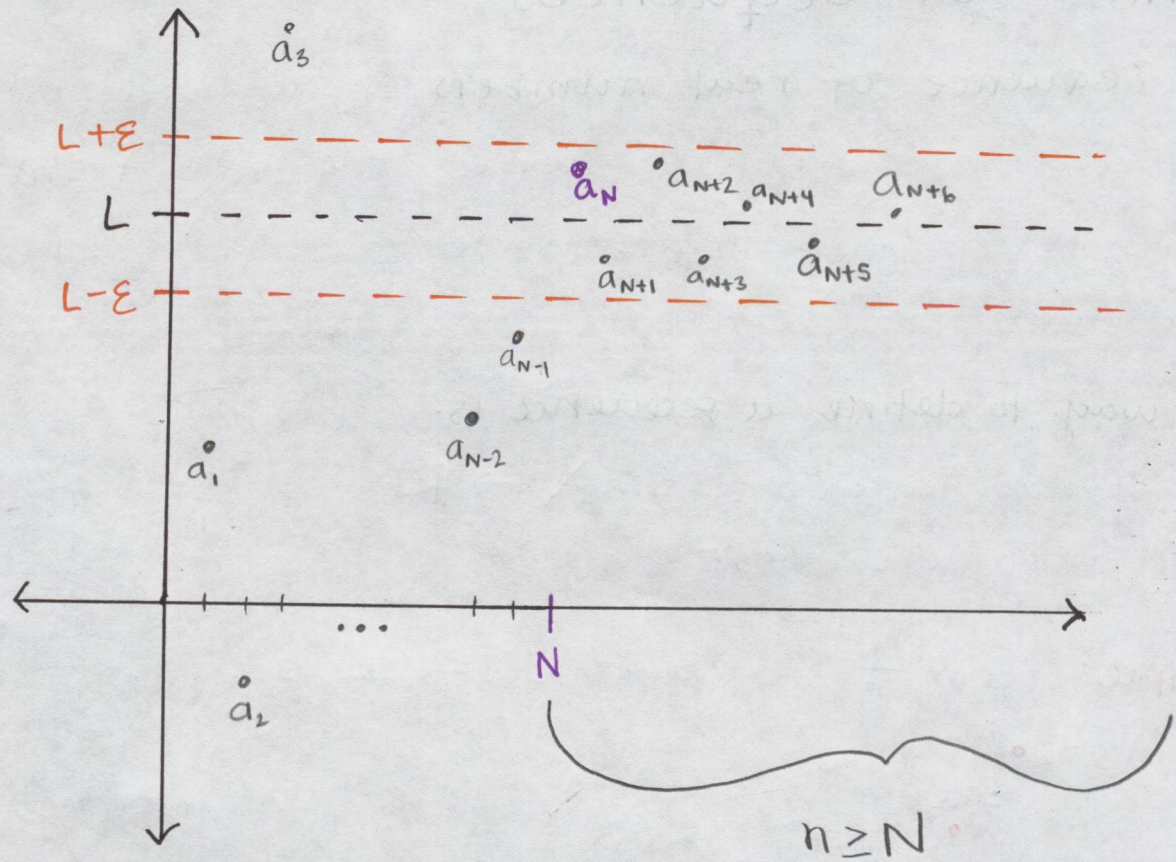 a₃
L+ε
a_N
a_{N+2}
a_{N+4}
a_{N+6}
L
a_{N+1}
a_{N+3}
a_{N+5}
L-ε
a_{N-1}
a_{N-2}
a₁
...
N
a₂
n ≥ N